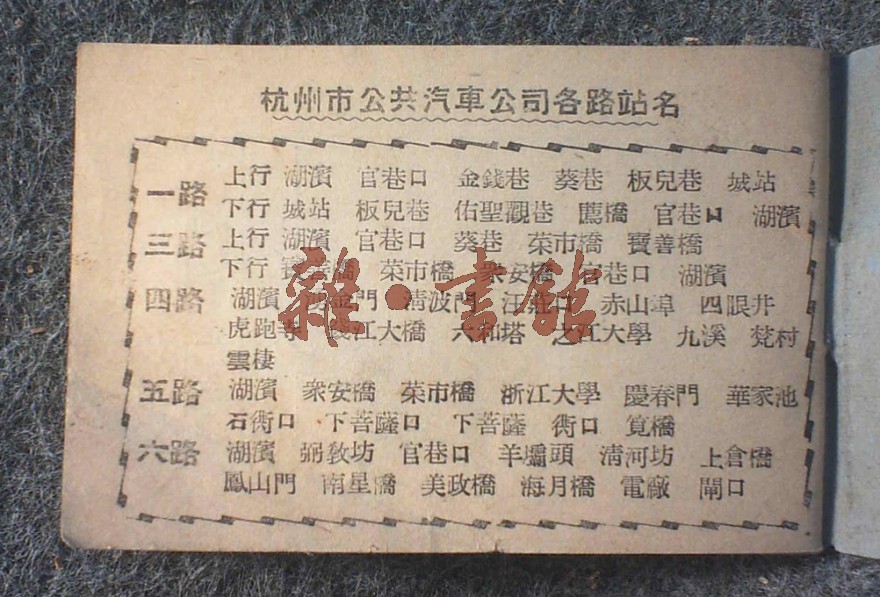 杭州市公共汽車公司各路站名
一路 上行 湖濱 官巷口 金錢巷 葵巷 板兒巷 城站
下行 城站 板兒巷 佑聖觀巷 薦橋 官巷口 湖濱
三路 上行 湖濱 官巷口 葵巷 菜市橋 寶善橋
下行 寶善橋 菜市橋 衆安橋 官巷口 湖濱
四路 湖濱 湧金門 清波門 汪莊口 赤山埠 四眼井
虎跑寺 錢江大橋 六和塔 之江大學 九溪 梵村
雲棲
五路 湖濱 衆安橋 菜市橋 浙江大學 慶春門 華家池
石衖口 下菩薩口 下菩薩 衖口 筧橋
六路 湖濱 弼教坊 官巷口 羊壩頭 清河坊 上倉橋
鳳山門 南星橋 美政橋 海月橋 電廠 閘口
雜·書館